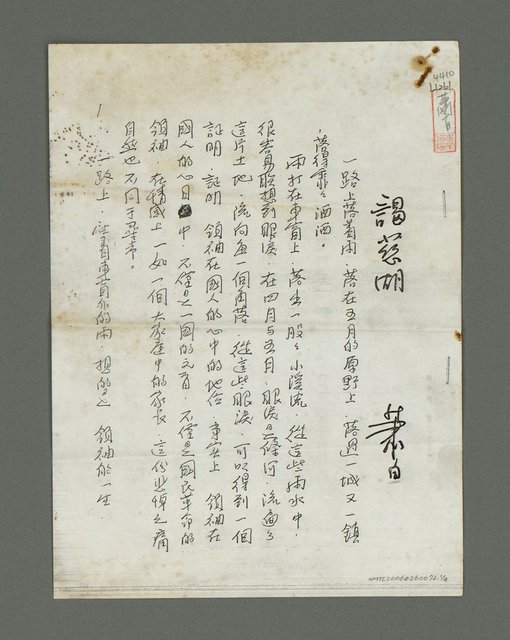 謁慈湖
蕭白
一路上落着雨，落在五月的原野上，落過一城又一鎮
，落得乖乖洒洒。
雨打在車窗上，落出一股股小溪流，從這些雨水中，
很容易聯想到眼淚，在四月与五月，眼淚是條河，流遍了
這片土地，流向每一個角落，從這些眼淚，可以得到一個
証明，証明 領袖在國人的心中的地位 事实上 領袖在
國人的心目中，不僅是一國的元首，不僅是國民革命的
領袖，在情感上，一如一個大家庭中的家長，這份悲悼之痛
自然也不同于尋常。
一路上，望着車窗外的雨，想的是 領袖的一生，
4410
4261
蕭白
NMTL20060260072 1/4